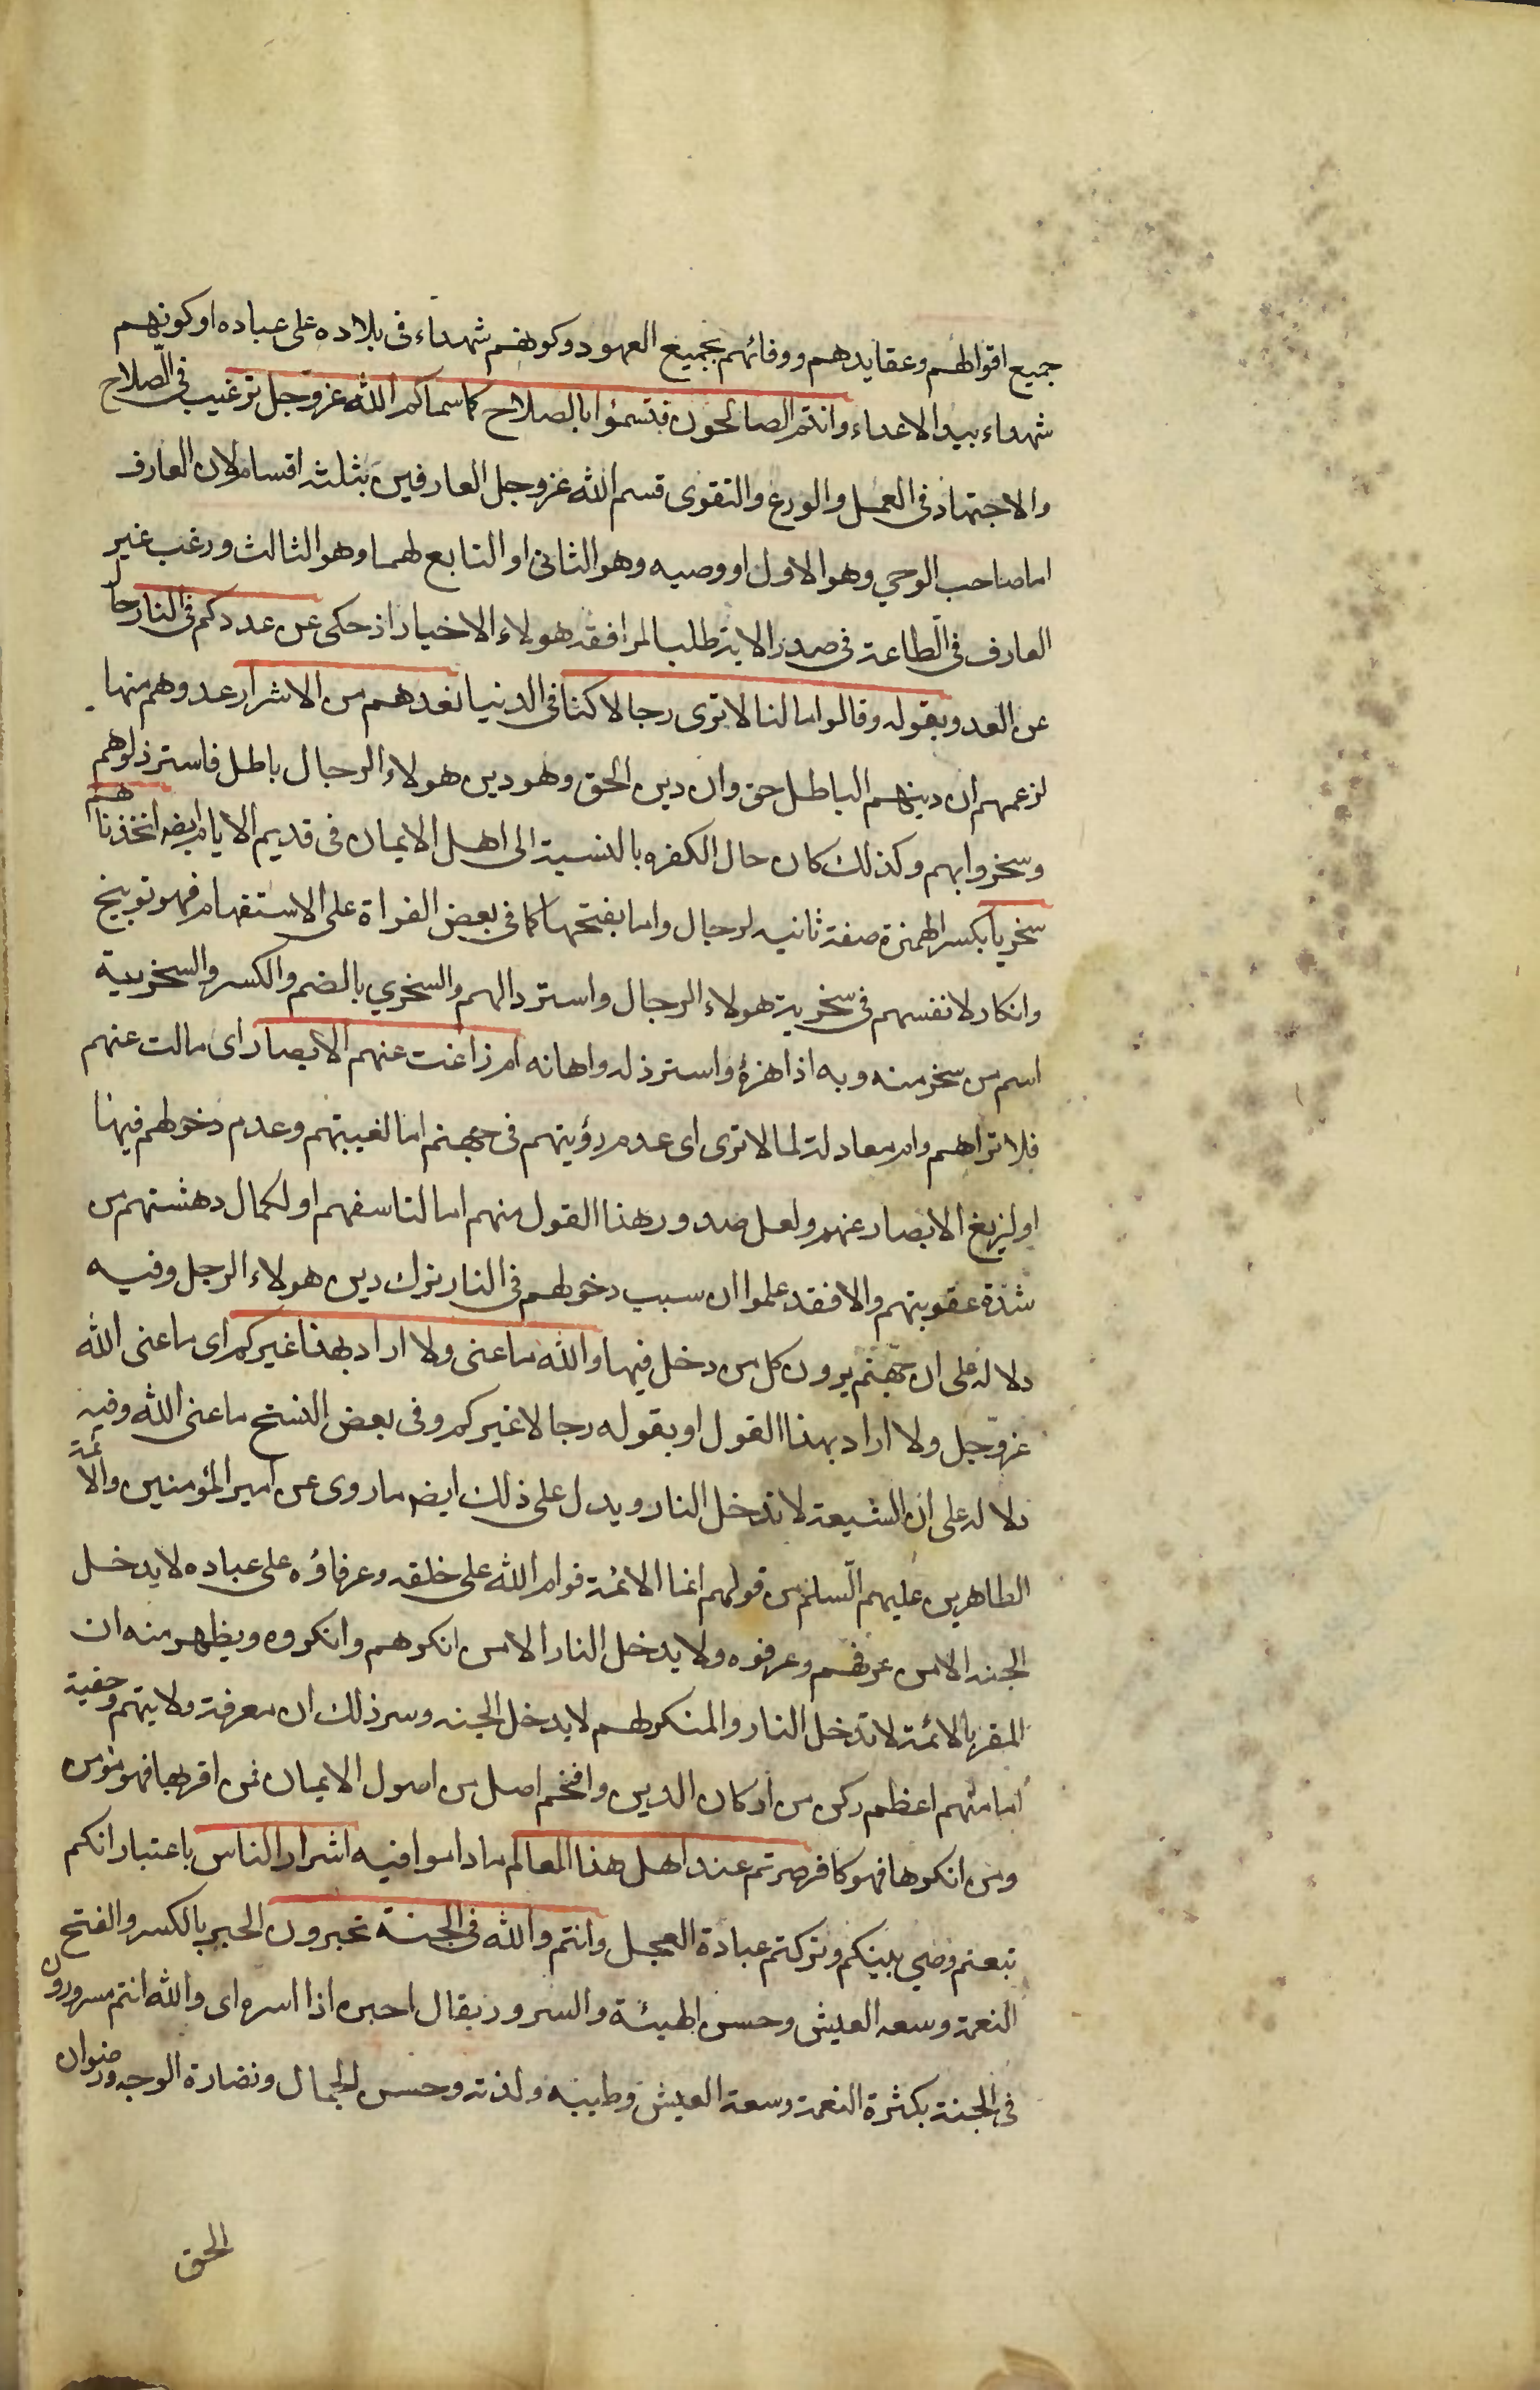 جميع اقوالهم وعقايدهم ووفائهم بجميع العهود وكونهم شهداء فى بلاده على عباده او كونهم
شهداء بيد الاعداء وانتم الصالحون فتسمّوا بالصلاح كما سماكم الله عز وجل ترغيب فى الصّلاح
والاجتهاد فى العمل والورع والتقوى قسم الله عز وجل العارفين بثلثه اقسام لان العارف
اما صاحب الوحي وهو الاول او وصيه وهو الثانى او التابع لهما وهو الثالث ورغب غير
العارف فى الطاعة فى صدر الاية طلبا لمرافقة هولاء الاخيار اذ حكى عن عدوكم فى النار حا
عن العدو بقوله وقالوا ما لنا لا نرى رجالا كنا فى الدنيا نعدهم من الاشرار عدوهم منها
لزعمهم ان دينهم الباطل حق وان دين الحق وهو دين هولاء الرجال باطل فاسترذلوهم
وسخروا بهم وكذلك كان حال الكفره بالنسبة الى اهل الايمان فى قديم الايام ايضا اتخذناهم
سخريا بكسر الهمزة صفة ثانيه لرجال واما بفتحها كما فى بعض القراة على الاستفهام فهو توبيخ
وانكار لانفسهم فى سخرية هولاء الرجال واسترذالهم والسخري بالضم والكسر والسخرية
اسم من سخر منه وبه اذا هزئ واسترذله واهانه ام زاغت عنهم الابصار اى مالت عنهم
فلا تراهم وام معادلة لما لا نرى اى عدم رؤيتهم فى جهنم اما لغيبتهم وعدم دخولهم فيها
او لزيغ الابصار عنهم ولعل صدور هذا القول منهم اما لتاسفهم او لكمال دهشتهم من
شدة عقوبتهم والا فقد علموا ان سبب دخولهم فى النار ترك دين هولاء الرجل وفيه
دلاله على ان جهنم يرون كل من دخل فيها والله ما عنى ولا اراد بهذا غيركم اى ما عنى الله
عز وجل ولا اراد بهذا القول او بقوله رجالا غيركم وفى بعض النسخ ما عنى الله وفيه
دلاله على ان الشيعة لا تدخل النار ويدل على ذلك ايضا ما روى عن امير المؤمنين والائمة
الطاهرين عليهم السلم من قولهم انما الائمة قوام الله على خلقه وعرفاؤه على عباده لا يدخل
الجنه الا من عرفهم وعرفوه ولا يدخل النار الا من انكرهم وانكروه ويظهر منه ان
المقر بالائمة لا تدخل النار والمنكر لهم لا يدخل الجنه وسر ذلك ان معرفة ولايتهم وحقية
امامتهم اعظم ركن من اركان الدين وافخم اصل من اصول الايمان فمن اقر بها فهو مؤمن
ومن انكرها فهو كافر صرتم عند اهل هذا العالم ما داموا فيه اشرار الناس باعتبار انكم
تبعتم وصي نبيكم وتركتم عبادة العجل وانتم والله فى الجنة تحبرون الحبر بالكسر والفتح
النعمة وسعه العيش وحسن الهيئة والسرور يقال احبره اذا اسره اى والله انتم مسرورون
فى الجنة بكثرة النعمة وسعة العيش وطيبه ولذته وحسن الجمال ونضارة الوجه ورضوان
الحق